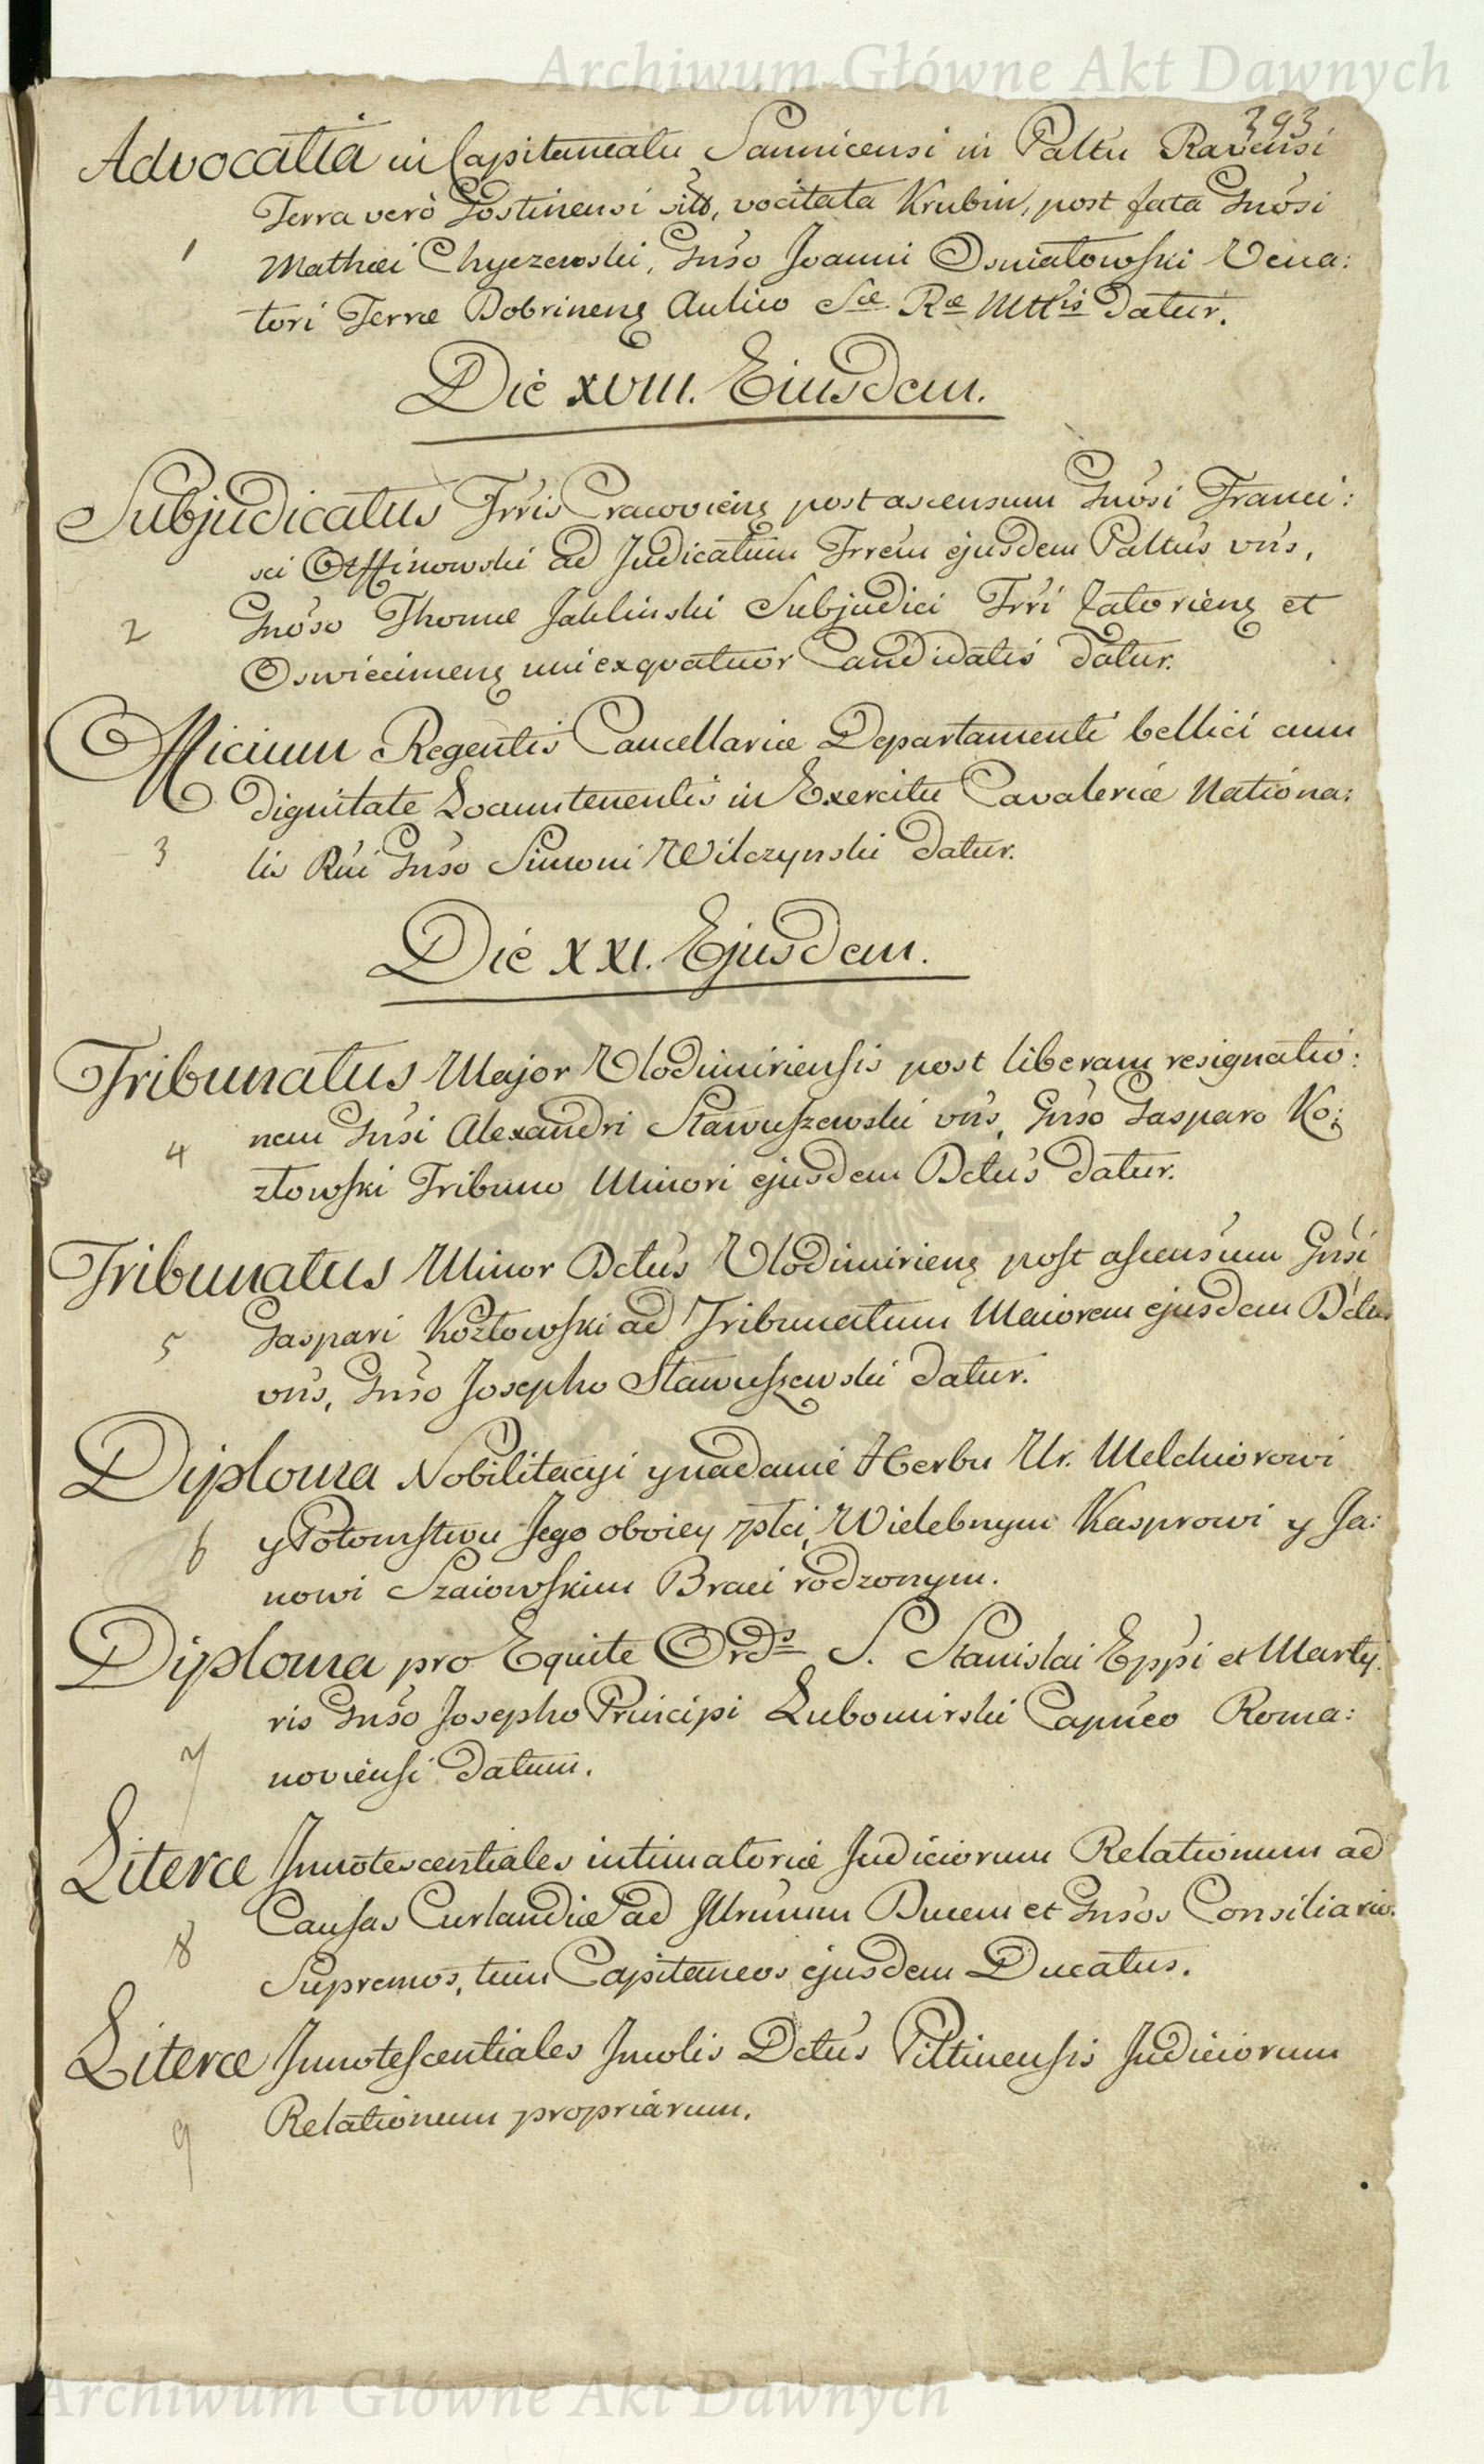 Archiwum Główne Akt Dawnych
393
Advocatia in Capitaneatu Sannicensi in Pałtu Ravensi
Terra verò Gostinensi sitt, vocitata Krubin, post fata Gnosi
1
Mathæi Chyczewski, Gnso Joanni Osniałowski Vena:
tori Terræ Dobrinens Aulico Sæ Ræ Mttis datur.
Die XVIII. Eiusdem.
Subjudicatus Trris Cracoviens post ascensum Gnosi Franci:
sci Otffinowski ad Judicatum Trrem ejusdem Pałtus vns,
2
Gnoso Thomæ Jaklinski Subjudici Trri Zatoriens et
Oswiecimens uni ex qvatuor Candidatis datur.
Officium Regentis Cancellariæ Departamenti bellici cum
dignitate Locumtenentis in Exercitu Cavaleriæ Nationa:
3
lis Rni Gnso Simoni Wilczynski datur.
Die XXI. Ejusdem.
Tribunatus Major Vlodimiriensis post liberam resignatio:
nem Gnsi Alexandri Stawuszewski vns, Gnso Gasparo Ko:
4
złowski Tribuno Minori ejusdem Dctus datur.
Tribunatus Minor Dctus Vlodimiriens post ascensum Gnsi
Gaspari Kozłowski ad Tribunatum Maiorem ejusdem Dctus
5
vns, Gnso Josepho Stawuszewski datur.
Diploma Nobilitacyi y nadanie Herbu Ur. Melchiorowi
y Potomstwu Jego oboiey płci, Wielebnym Kasprowi y Ja:
6
nowi Szaiowskim Braci rodzonym.
Diploma pro Equite Ords S. Stanislai Eppi et Marty:
ris Gnso Josepho Principi Lubomirski Capneo Roma:
7
noviensi datum.
Literæ Innotescentiales intimatoriæ Judiciorum Relationum ad
Causas Curlandiæ ad Illrmum Ducem et Gnsos Consiliarios
8
Supremos, tum Capitaneos ejusdem Ducatus.
Literæ Innotescentiales Incolis Dctus Piltinensis Judiciorum
Relationum propriarum.
9
Archiwum Główne Akt Dawnych